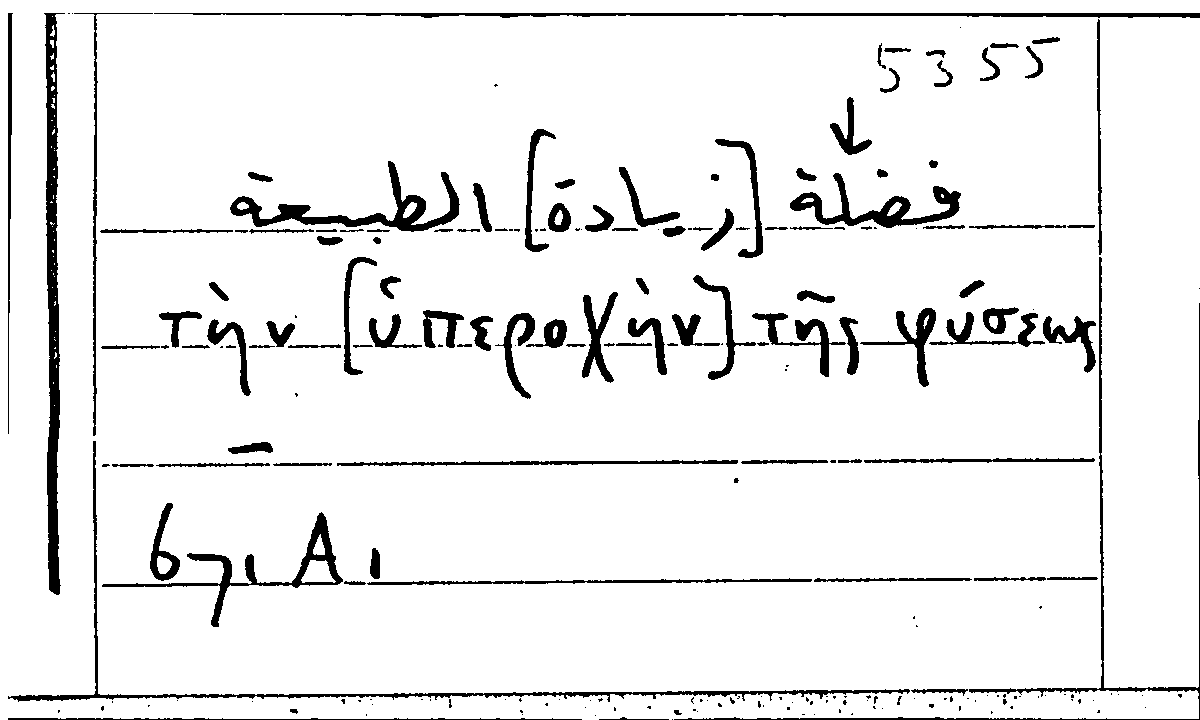 5355
↓
فضلة [زيادة] الطبيعة
τὴν [ὑπεροχὴν] τῆς φύσεως
–
671 A 1